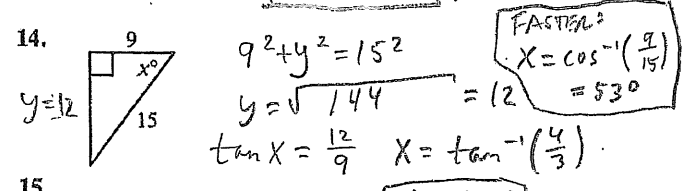 14.
9
x°
15
y=12
9²+y²=15²
y=√144 = 12
tan X = 12/9 X = tan⁻¹(4/3).
FASTER:
X = cos⁻¹(9/15)
= 53°
15